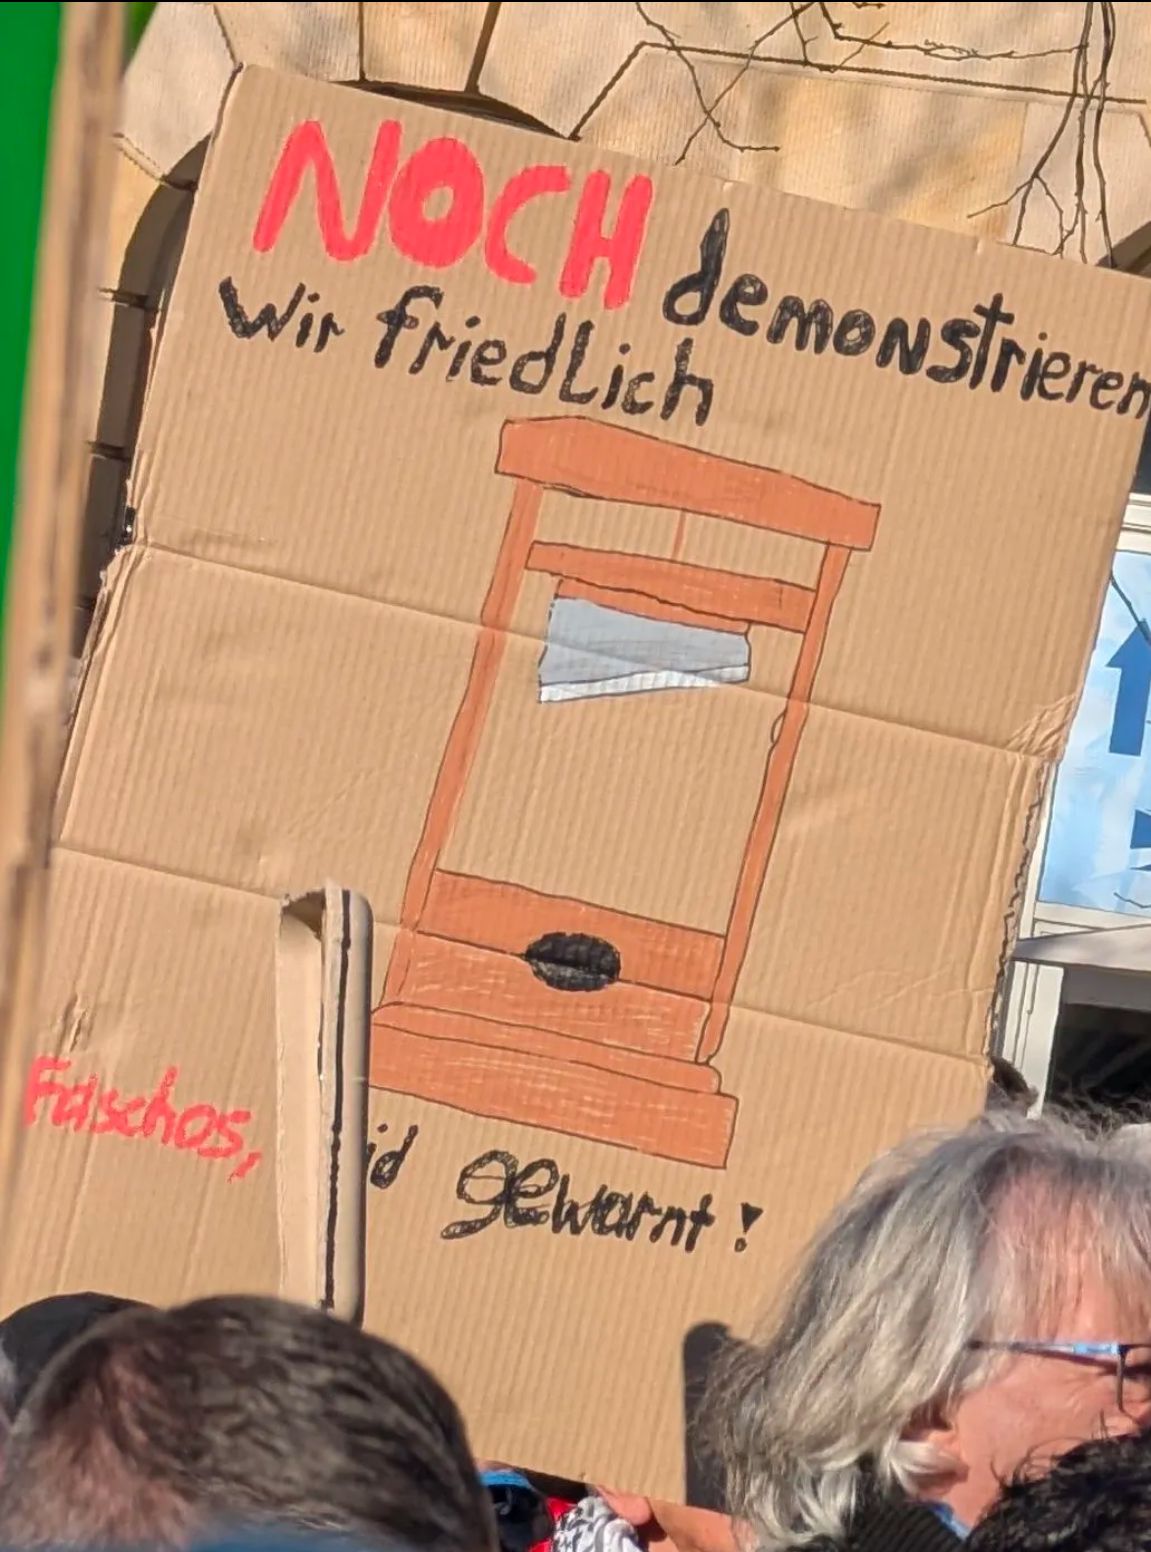 NOCH demonstrieren
wir friedlich
Faschos,
id gewarnt!